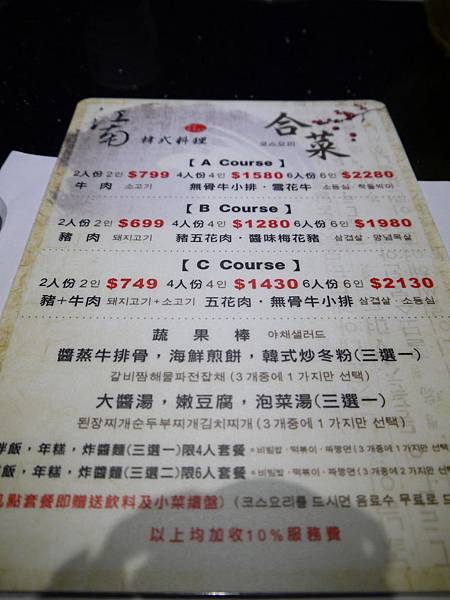 江南 韓式料理 合菜
코스요리
【 A Course 】
2人份 2인 $799 4人份 4인 $1580 6人份 6인 $2280
牛 肉 소고기 無骨牛小排·雪花牛 소등심·차돌박이
【 B Course 】
2人份 2인 $699 4人份 4인 $1280 6人份 6인 $1980
豬 肉 돼지고기 豬五花肉·醬味梅花豬 삼겹살·양념목살
【 C Course 】
2人份 2인 $749 4人份 4인 $1430 6人份 6인 $2130
豬+牛肉 돼지고기+소고기 五花肉·無骨牛小排 삼겹살·소등심
蔬 果 棒 야채샐러드
醬蒸牛排骨,海鮮煎餅,韓式炒冬粉(三選一)
갈비찜해물파전잡채 (3 개중에 1 가지만 선택)
大醬湯,嫩豆腐,泡菜湯(三選一)
된장찌개순두부찌개김치찌개 (3 개중에 1 가지만 선택)
拌飯,年糕,炸醬麵(三選一)限4人套餐 *비빔밥·떡볶이·짜장면 (3 개중에 1 가지만 선택
飯,年糕,炸醬麵(三選二)限6人套餐 *비빔밥·떡볶이·짜장면 (3 개중에 2 가지만 선택
凡點套餐即贈送飲料及小菜續盤) (코스요리를 드시면 음료수 무료로 드
以上均加收10%服務費